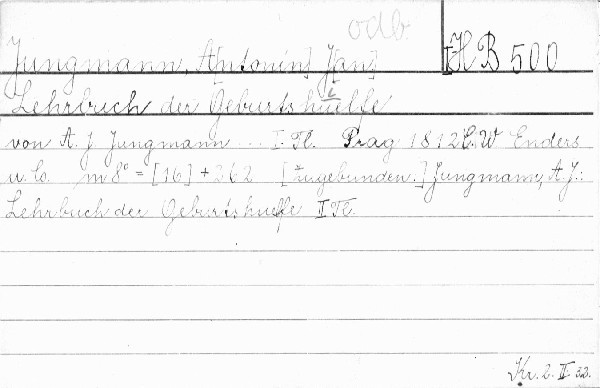 odb.
Jungmann, A[ntonín] J[an]
IH B 500
Lehrbuch der Geburtshuelfe
von A. J. Jungmann ... I. Tl. Prag 1812 C. W Enders
u. Co. m 8° = [16] + 362 [Zugebunden.] Jungmann, A. J.:
Lehrbuch der Geburtshuelfe II Tl.
Kr. 2. II 32.